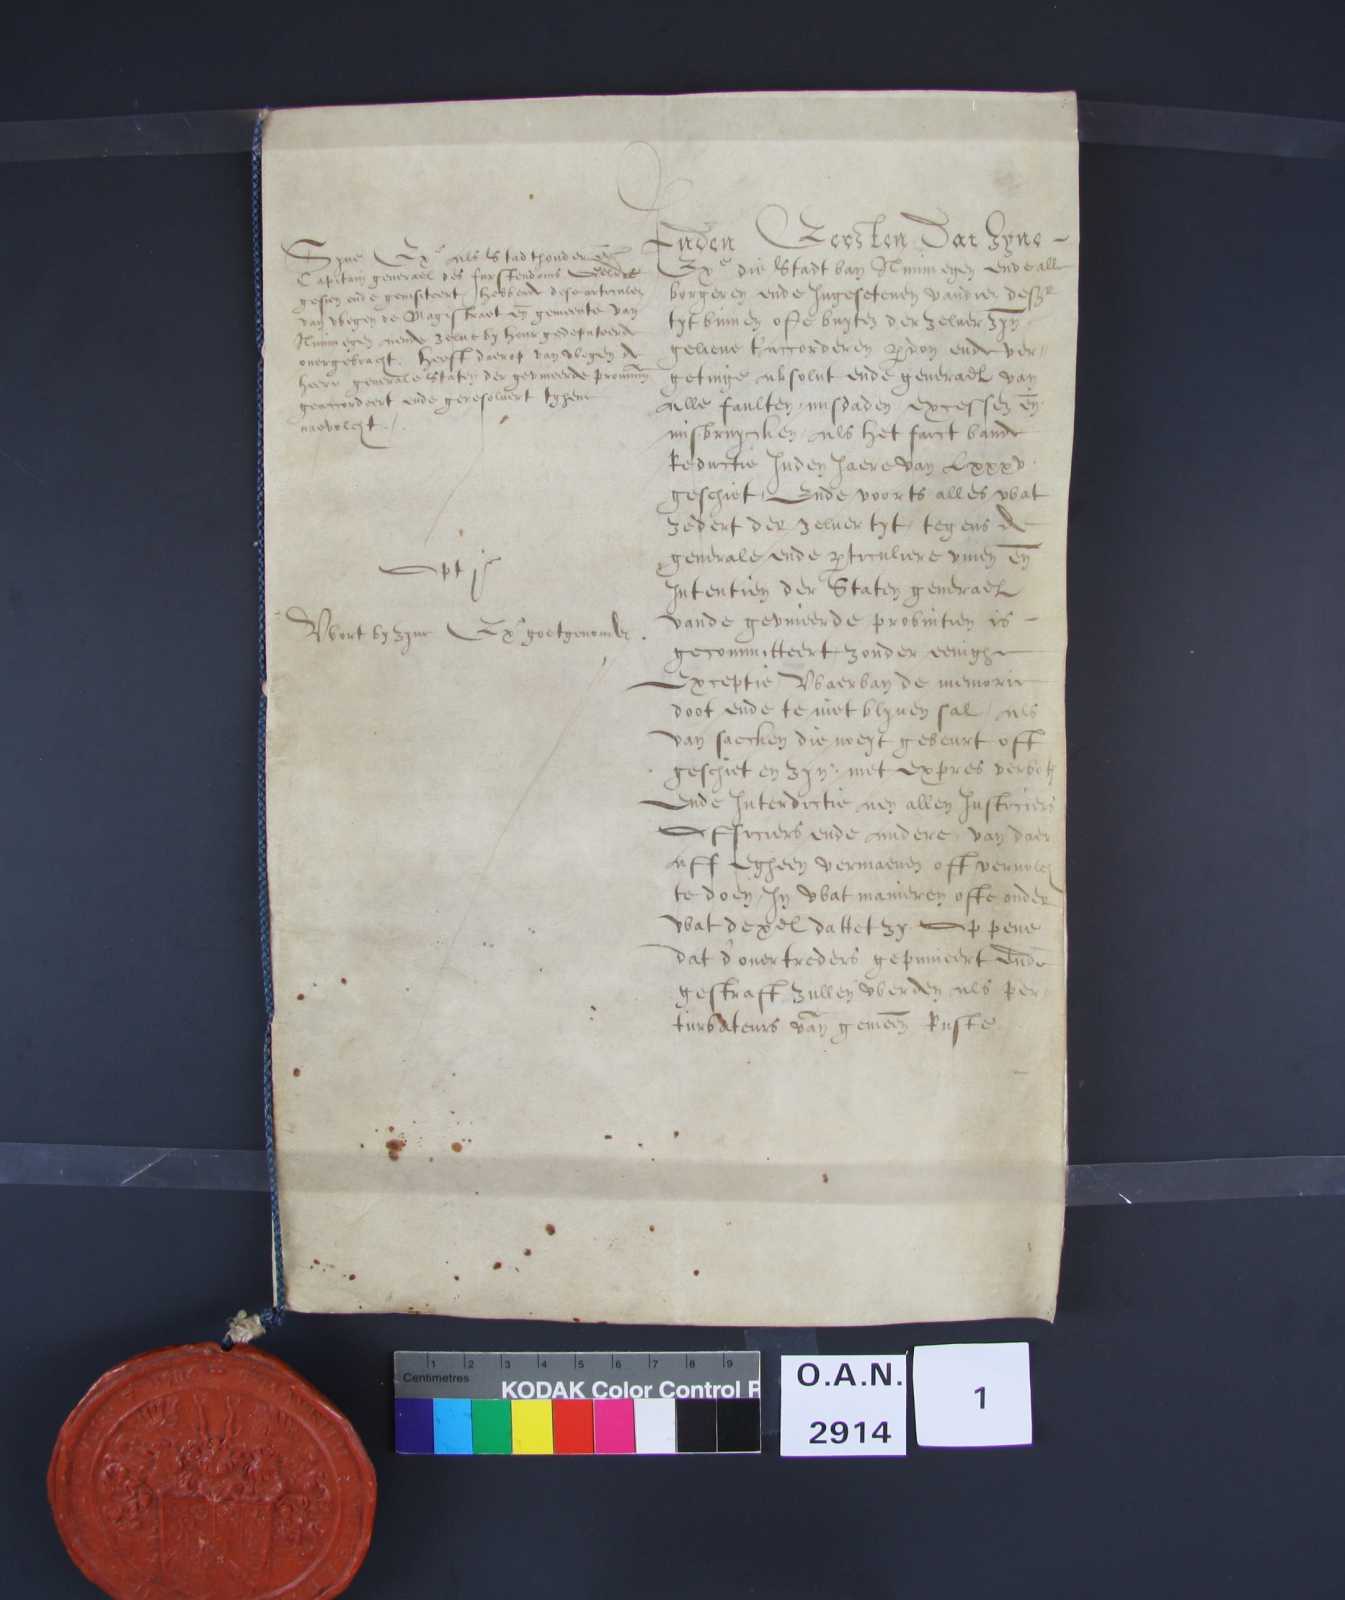 Syne Exe als Stadthouder en
Capitain generael des furstendoms Gelre
gesien ende gevisiteert hebbende dese articulen
van wegen de Magistraet en gemeente van
Nuimegen aende zelve by heur gedeputeerde
overgebracht. Heeft daerop van wegen de
heere generale Staten der geunieerde provincien
geaccordeert ende geresolveert tghene
naevolcht.
Opt j
Wort by zyne Exe goetgevonden.
Inden Eersten Dat zyne
Exe die Stadt van Nuimegen ende alle
borgeren ende Ingesetenen vandien desz
tyt binnen ofte buyten der zelver zyn
gelieve t'accorderen pardon ende ver
getinge absolut ende generael van
alle faulten misdaden excessen en
misbruycken als het faict vande
Reductie Inden Jaere van Lxxxv
geschiet, Ende voorts alles wat
zedert der zelver tyt tegens de
generale ende particuliere unien en
Intentien der Staten generael
vande geunieerde provintien is
gecommitteert zonder eenighe
Exceptie Waervan de memorie
doot ende te niet blyven sal als
van saecken die noeyt gebeurt oft
geschiet en zyn. met expres verboth
Ende Interdictie aen allen Justiciers
Officiers ende andere van daer
aff egheen vermaenen oft vervolch
te doen In wat manieren ofte onder
wat dexel dattet zy Op pene
dat d'overtreders gepunieert ende
gestraft zullen werden als per
turbateurs van gemeen Ruste
Centimetres
1 2 3 4 5 6 7 8 9
KODAK Color Control P
O.A.N.
2914
1